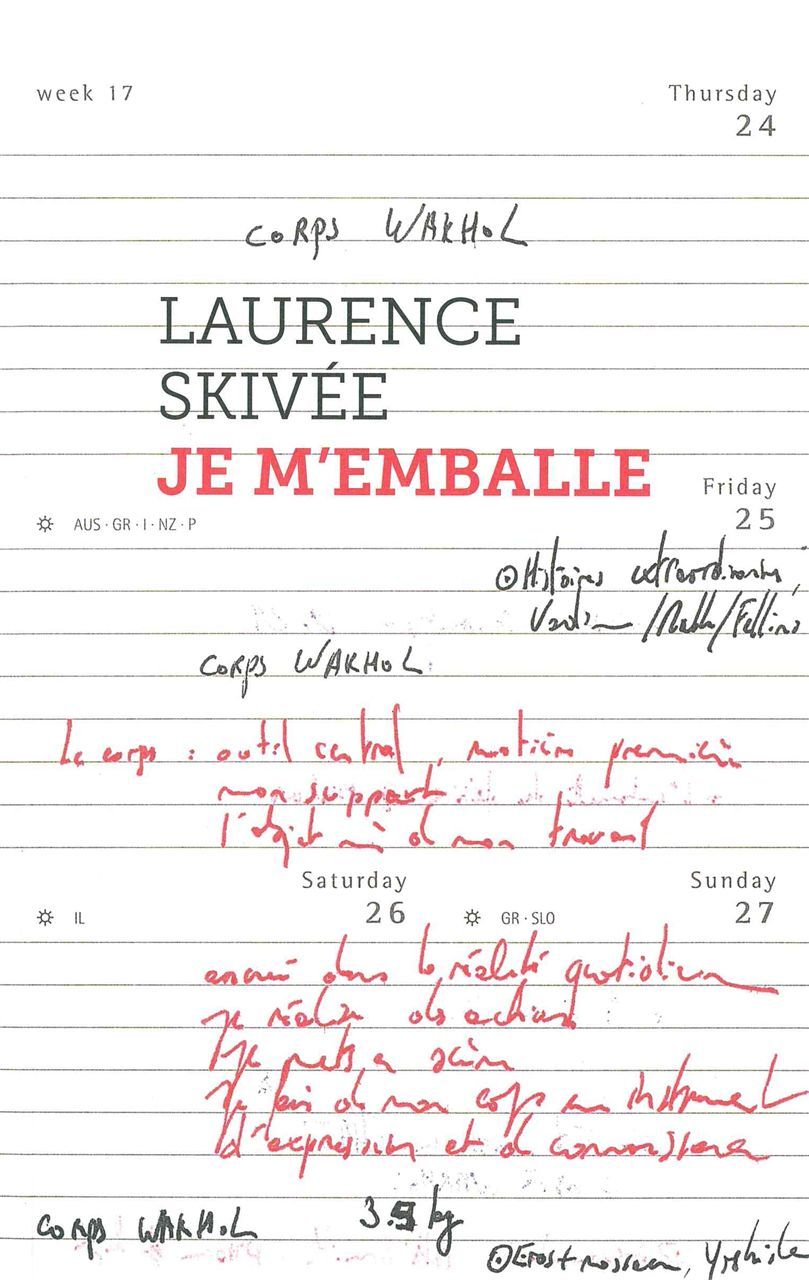 week 17
Thursday
24
CORPS WAKHOL
LAURENCE
SKIVÉE
JE M'EMBALLE
Friday
25
AUS·GR·I·NZ·P
Histoires extraordinaires,
/Fellini
CORPS WAKHOL
Le corps : outil central, matière première
mon support
l'objet de mon travail
Saturday
26
Sunday
27
IL
GR·SLO
ancré dans la réalité quotidienne
je réalise des actions
je mets en scène
je fais de mon corps un instrument
d'expression et de connaissance
CORPS WAKHOL
3.5 kg